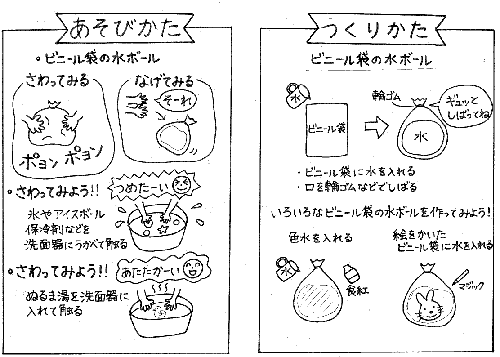 あそびかた
・ビニール袋の水ボール
さわってみる
ポヨン ポヨン
なげてみる
そーれ
・さわってみよう!!
つめたーい
氷やアイスボール
保冷剤などを
洗面器にうかべて触る
・さわってみよう!!
あたたかーい
ぬるま湯を洗面器に
入れて触る
つくりかた
ビニール袋の水ボール
水
ビニール袋
輪ゴム
水
ギュッと
しばってね
・ビニール袋に水を入れる
・口を輪ゴムなどでしばる
いろいろなビニール袋の水ボールを作ってみよう!
色水を入れる
水
食紅
絵をかいた
ビニール袋に水を入れる
マジック